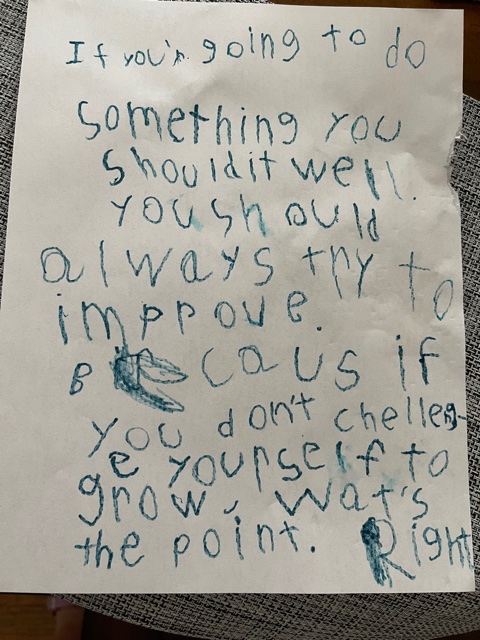 If you'r going to do
something you
shouldit well.
you should
always try to
improve.
Be caus if
you don't cheller-
ge yourself to
grow, wat's
the point. Right